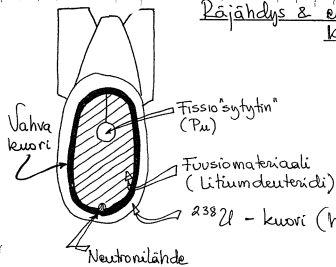 Räjähdys &
Vahva
kuori
Fissio"sytytin"
(Pu)
Fuusiomateriaali
(Litiumdeuteridi)
²³⁸U - kuori (
Neutronilähde